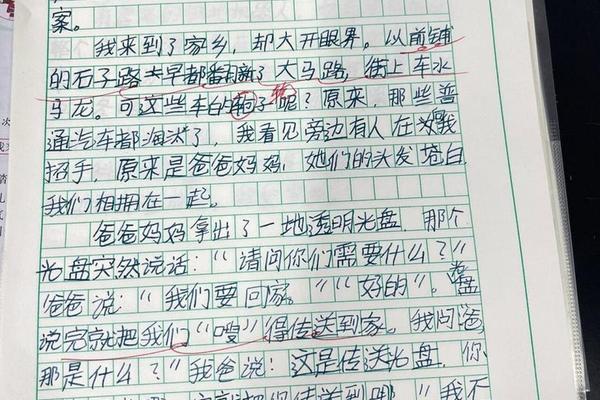 案。
我来到了家乡，却大开眼界。以前铺
的石子路大早都翻新了大马路，街上车水
马龙。可这些车的轮子呢？原来，那些普
通汽车都淘汰了，我看见旁边有人在对我
招手，原来是爸爸妈妈，她们的头发苍白
我们相拥在一起。
爸爸妈妈拿出了一地透明光盘，那个
光盘突然说话："请问你们需要什么？"
爸爸说："我们要回家。""好的"。光盘
说完就把我们"嗖"得传送到家。我问爸
那是什么？"我爸说：这是传送光盘，你
我不